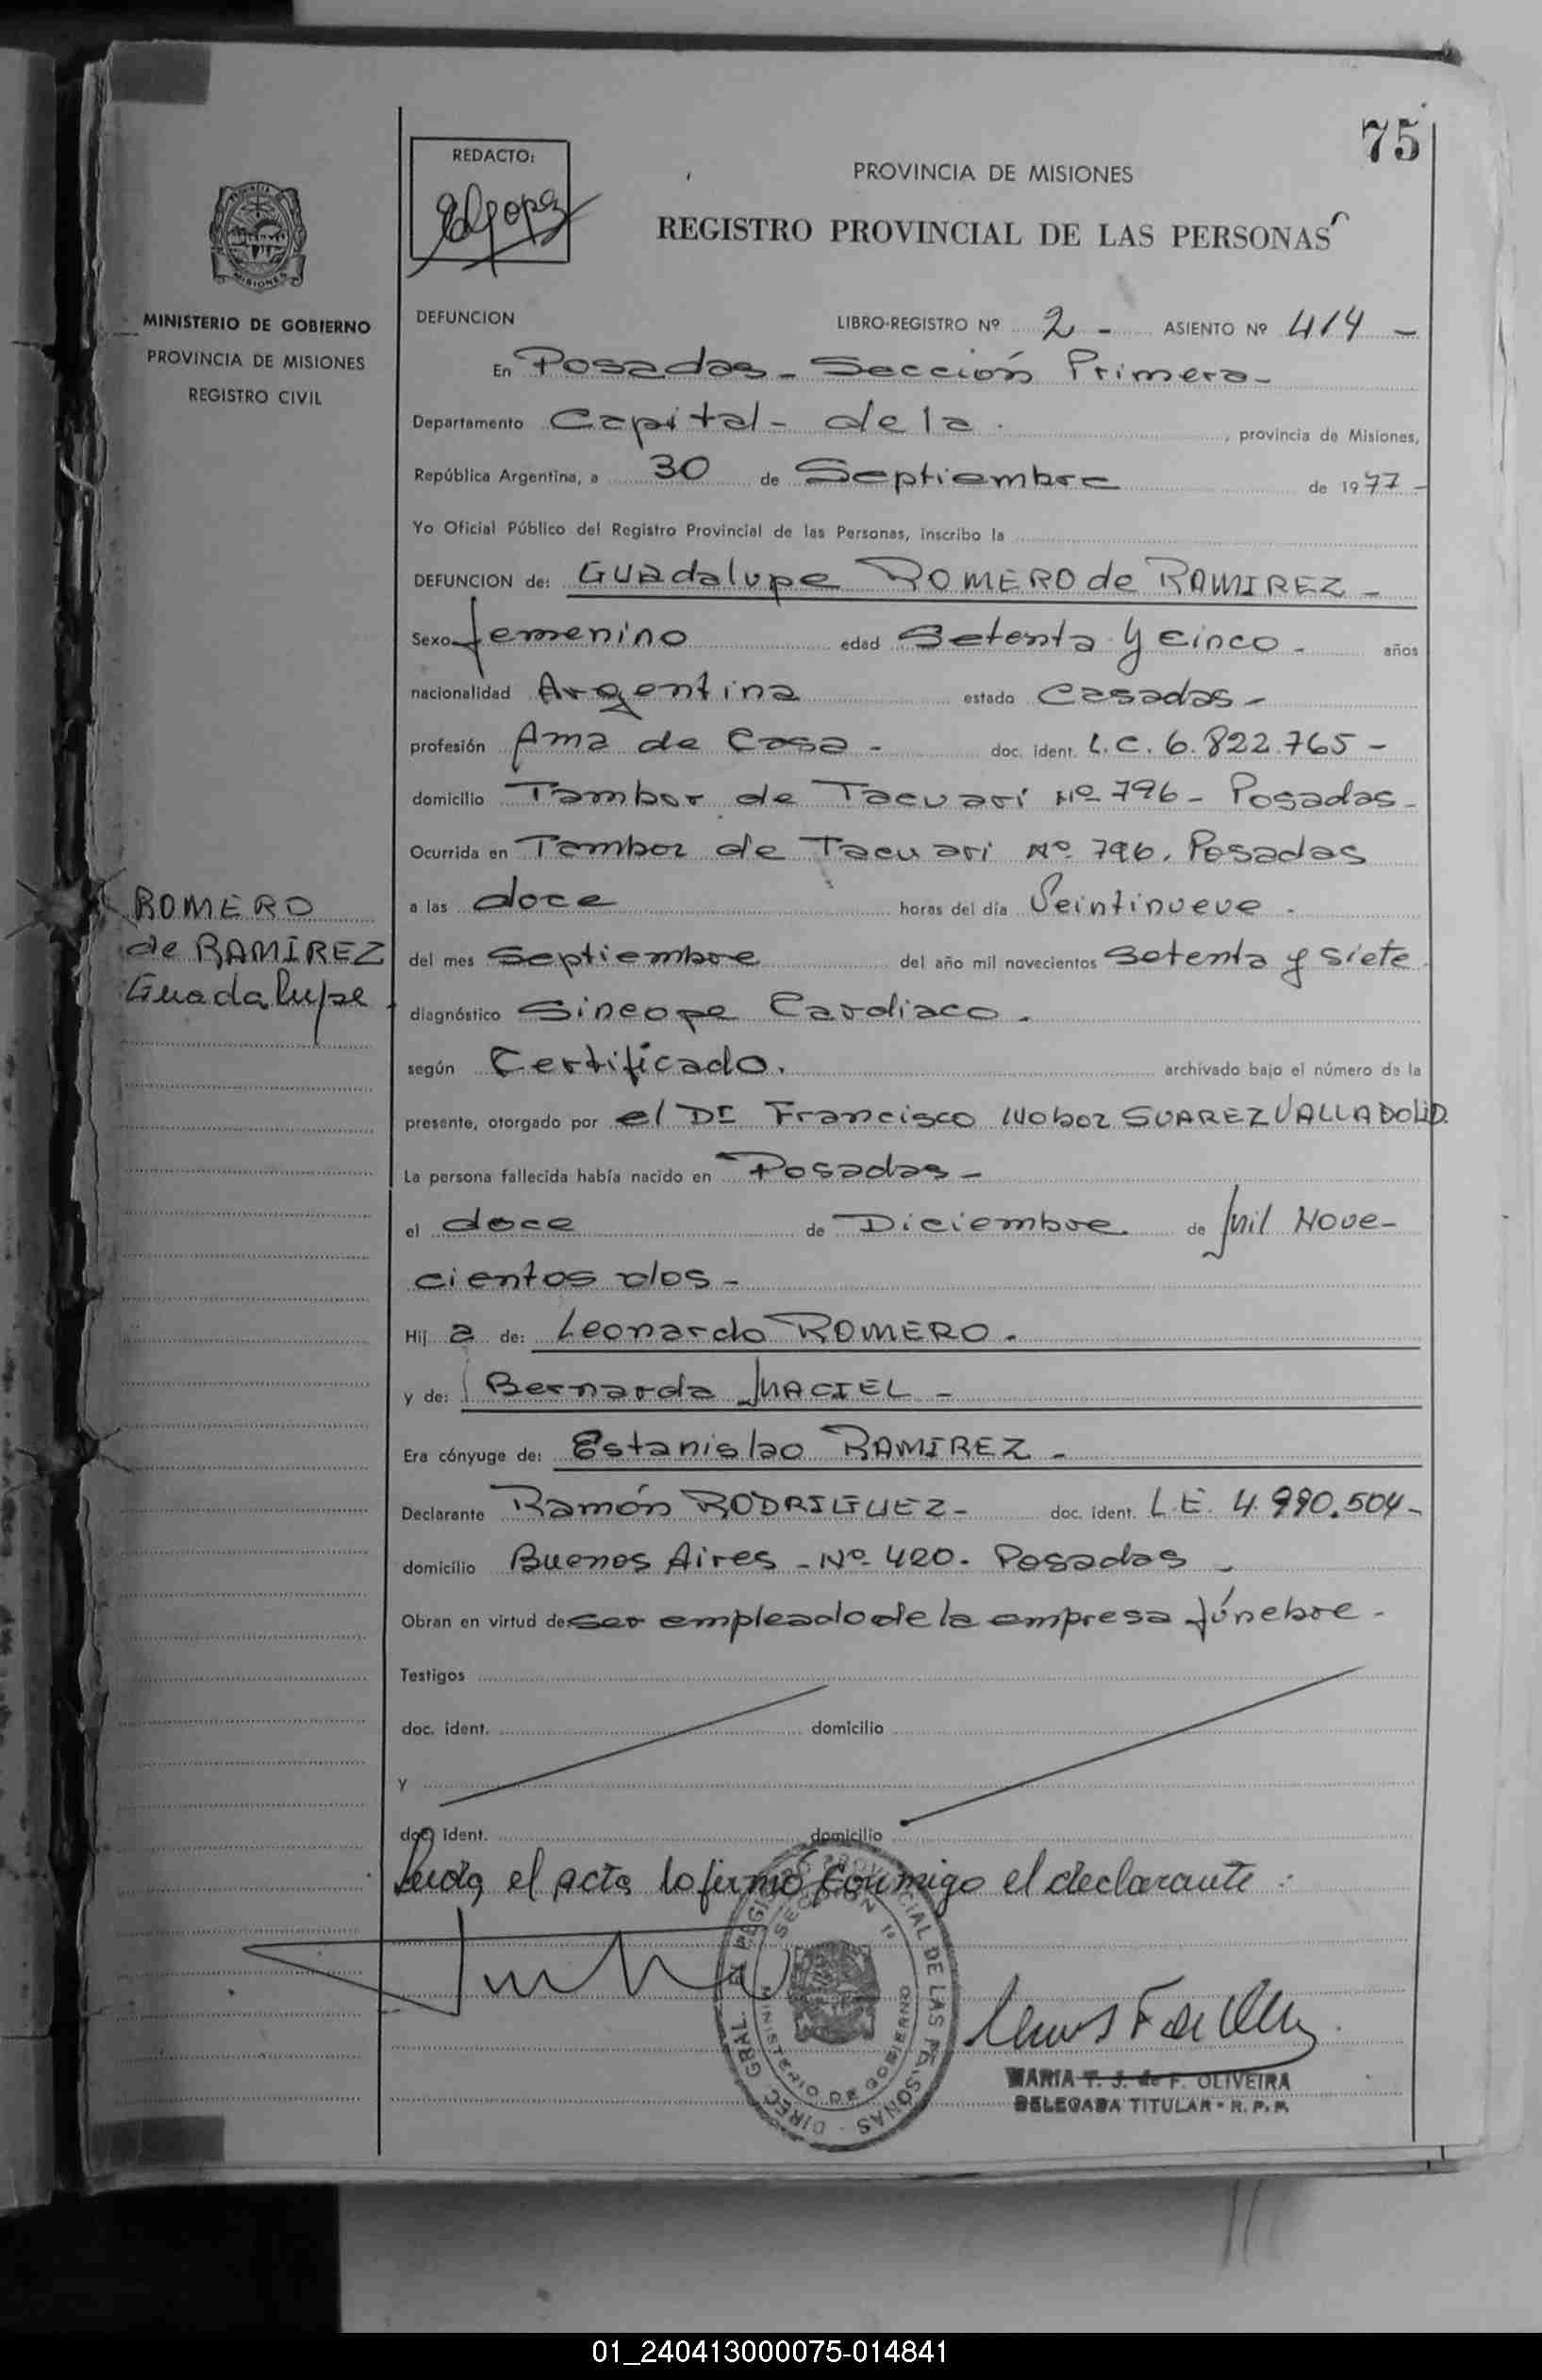 75
REDACTO:
PROVINCIA DE MISIONES
REGISTRO PROVINCIAL DE LAS PERSONAS
MISIONES
MINISTERIO DE GOBIERNO
PROVINCIA DE MISIONES
REGISTRO CIVIL
DEFUNCION LIBRO-REGISTRO Nº 2 - ASIENTO Nº 414 -
En Posadas - Sección Primera -
Departamento Capital - de la , provincia de Misiones,
República Argentina, a 30 de Septiembre de 1977 -
Yo Oficial Público del Registro Provincial de las Personas, inscribo la
DEFUNCION de: Guadalupe ROMERO de RAMIREZ -
Sexo femenino edad Setenta y cinco - años
nacionalidad Argentina estado Casadas -
profesión Ama de Casa - doc. ident. L.C. 6.822.765 -
domicilio Tambor de Tacuarí Nº 796 - Posadas -
Ocurrida en Tambor de Tacuari Nº 796. Posadas
a las doce horas del día Veintinueve -
del mes Septiembre del año mil novecientos Setenta y siete
diagnóstico Sincope Cardiaco -
según Certificado. archivado bajo el número de la
presente, otorgado por el Dr Francisco SUAREZ VALLADOLID.
La persona fallecida había nacido en Posadas -
el doce de Diciembre de Mil Nove-
cientos dos -
Hij a de: Leonardo ROMERO.
y de: Bernarda MACIEL -
Era cónyuge de: Estanislao RAMIREZ -
Declarante Ramón RODRIGUEZ - doc. ident. L.E. 4.990.504 -
domicilio Buenos Aires - Nº 420. Posadas -
Obran en virtud de: ser empleado de la empresa fúnebre -
Testigos
doc. ident. domicilio
y
doc. ident. domicilio
Leida el acta la firmó conmigo el declarante :
ROMERO
de RAMIREZ
Guadalupe
DIREC. GRAL. REGISTRO PROVINCIAL DE LAS PERSONAS
SECCION 1ª
MINISTERIO DE GOBIERNO
MARIA T. J. de F. OLIVEIRA
DELEGADA TITULAR - R. P. P.
01_240413000075-014841